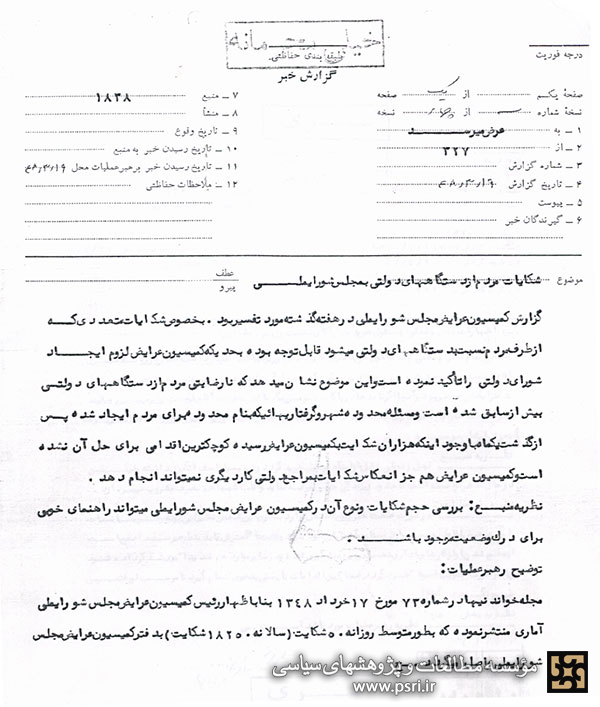 خیلی محرمانه
طبقه بندی حفاظتی
گزارش خبر
درجه فوریت
صفحهٔ یکم از یک صفحه
نسخهٔ شماره از نسخه
۱ ــ به عرض میرسد
۲ ــ از ۳۲۷
۳ ــ شماره گزارش
۴ ــ تاریخ گزارش ۴۸٫۳٫۱۹
۵ ــ پیوست
۶ ــ گیرندگان خبر
۷ ــ منبع ۱۸۳۸
۸ ــ منشأ
۹ ــ تاریخ وقوع
۱۰ ــ تاریخ رسیدن خبر به منبع
۱۱ ــ تاریخ رسیدن خبر برهبرعملیات محل ۴۸٫۳٫۱۹
۱۲ ــ ملاحظات حفاظتی
موضوع شکایات مردم از دستگاههای دولتی بمجلس شورایملی
عطف
پیرو
گزارش کمیسیون عرایض مجلس شورایملی در هفته گذشته مورد تفسیر بود . بخصوص شکایات متعددی که
از طرف مردم نسبت بدستگاههای دولتی میشود قابل توجه بوده بحدیکه کمیسیون عرایض لزوم ایجاد
شورای دولتی را تأکید نموده است و این موضوع نشان میدهد که نارضایتی مردم از دستگاههای دولتی
بیش از سابق شده است و مسئله محدوده شهر و گرفتاریهائیکه بنام محدوده برای مردم ایجاد شده پس
از گذشت یکماه با وجود اینکه هزاران شکایت بکمیسیون عرایض رسیده کوچکترین اقدامی برای حل آن نشده
است و کمیسیون عرایض هم جز انعکاس شکایات بمراجع دولتی کار دیگری نمیتواند انجام دهد .
نظریه منبع : بررسی حجم شکایات و نوع آن در کمیسیون عرایض مجلس شورایملی میتواند راهنمای خوبی
برای درك وضعیت موجود باشد .
توضیح رهبر عملیات :
مجله خواندنیها در شماره ۷۳ مورخ ۱۷ خرداد ۱۳۴۸ بنا باظهار رئیس کمیسیون عرایض مجلس شورایملی
آماری منتشر نموده که بطور متوسط روزانه ۵۰ شکایت (سالانه ۱۸۲۵۰ شکایت) بدفتر کمیسیون عرایض مجلس
شورایملی
موسسه مطالعات و پژوهشهای سیاسی
www.psri.ir